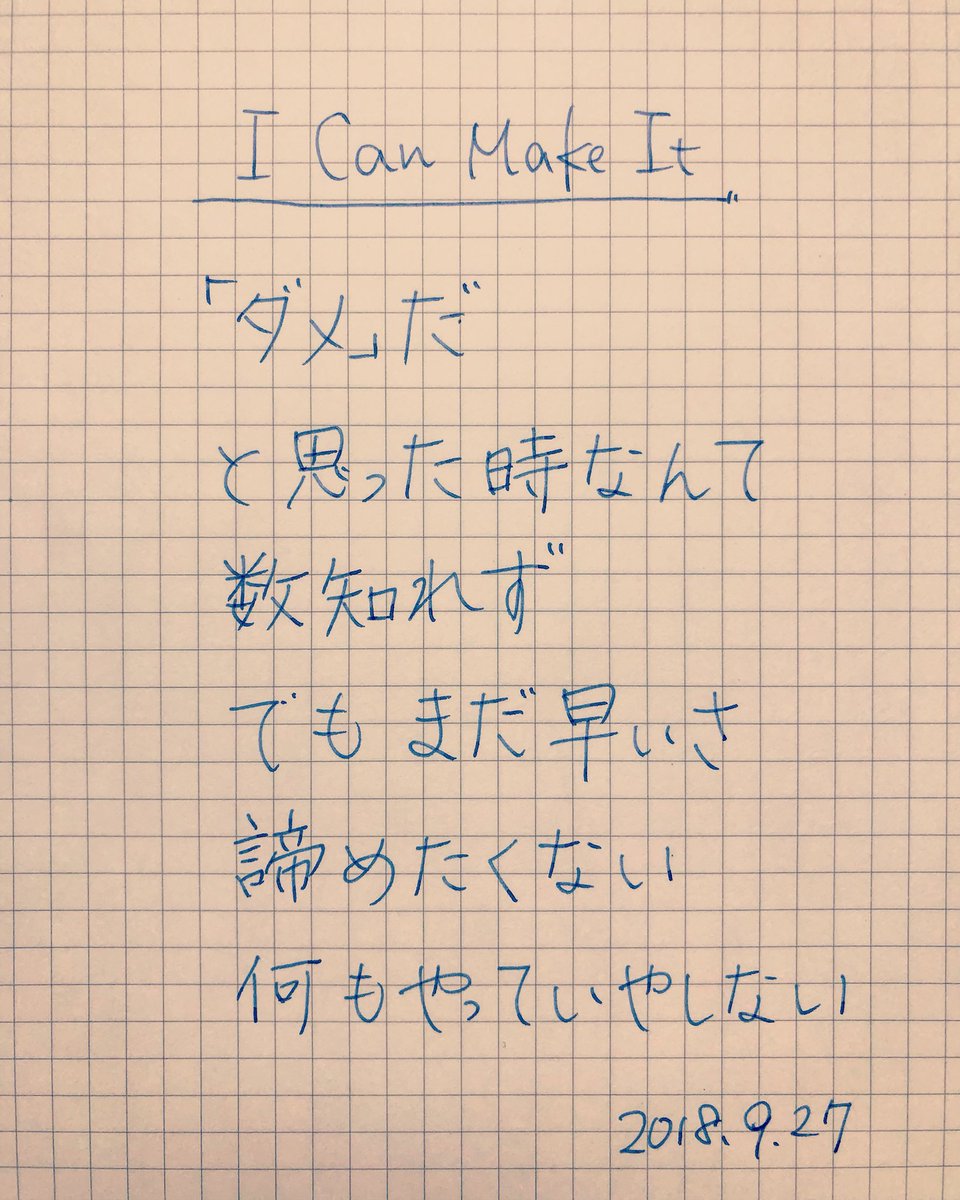 I Can Make It
「ダメ」だ
と思った時なんて
数知れず
でも まだ早いさ
諦めたくない
何もやっていやしない
2018.9.27